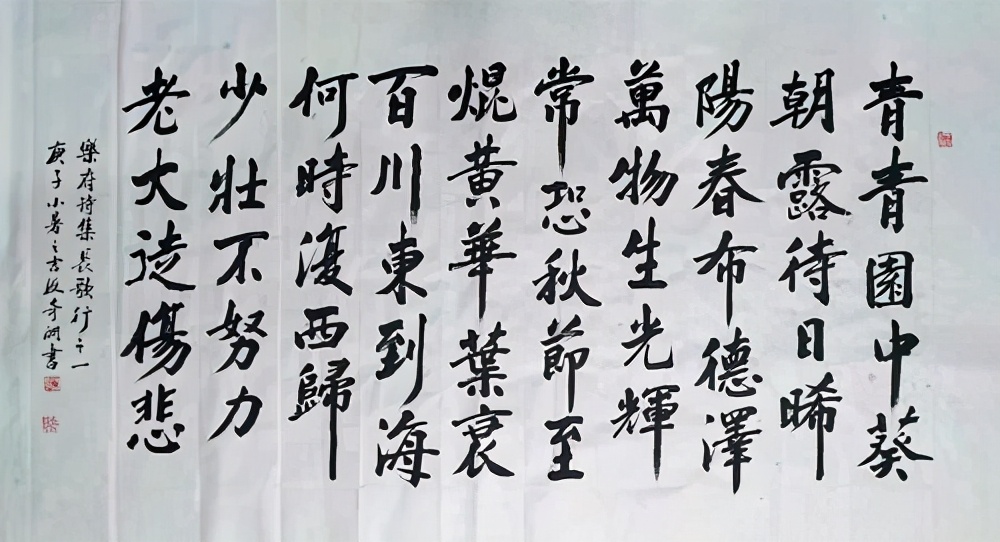 青青園中葵
朝露待日晞
陽春布德澤
萬物生光輝
常恐秋節至
焜黃華葉衰
百川東到海
何時復西歸
少壯不努力
老大徒傷悲
樂府詩集長歌行之一
庚子小暑之吉書